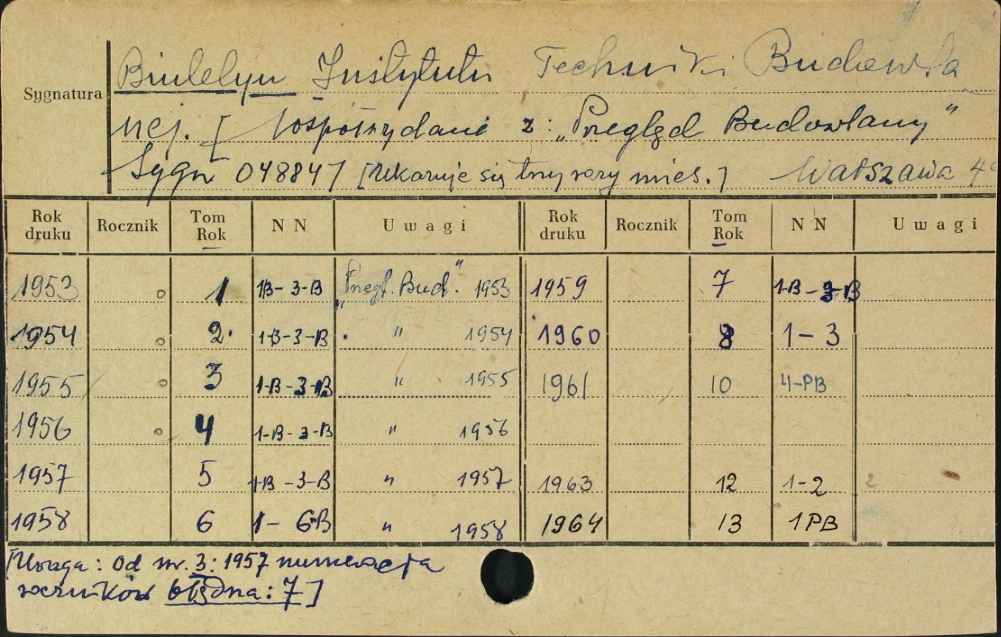 Sygnatura
Biuletyn Instytutu Techniki Budowla
nej. [Współwydanie z: „Przegląd Budowlany”
Sygn 048847 [Ukazuje się trzy razy mies.] Warszawa 4°
Rok druku Rocznik Tom Rok NN Uwagi Rok druku Rocznik Tom Rok NN Uwagi
1953 o 1 1B-3-B „Przegl. Bud.” 1953 1959 7 1-B-3-B
1954 o 2. 1-B-3-B " 1954 1960 8 1-3
1955 o 3 1-B-3-B " 1955 1961 10 4-PB
1956 o 4 1-B-3-B " 1956
1957 5 1-B-3-B " 1957 1963 12 1-2 2
1958 6 1-6-B " 1958 1964 13 1PB
[Uwaga: Od nr. 3: 1957 numeracja
roczników błędna: 7]